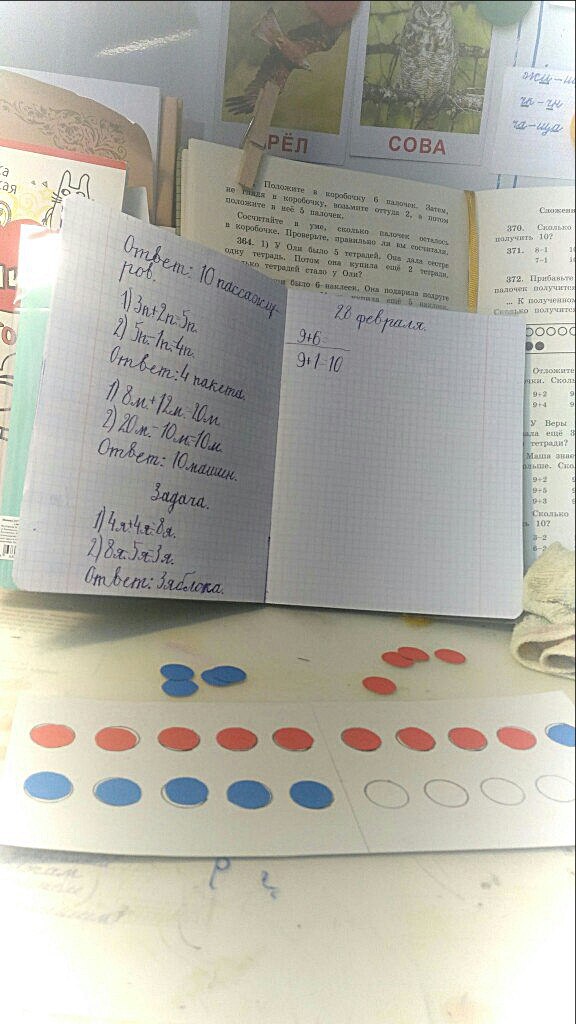 РЁЛ
СОВА
жи-
ча-
ча-ща
Положите в коробочку 6 палочек. Затем,
не глядя в коробочку, возьмите оттуда 2, а потом
положите в неё 5 палочек.
Сосчитайте в уме, сколько палочек осталось
в коробочке. Проверьте, правильно ли вы сосчитали.
364. 1) У Оли было 5 тетрадей. Она дала сестре
одну тетрадь. Потом она купила ещё 2 тетради.
тетрадей стало у Оли?
было 6 наклеек. Она подарила подруге
купила ещё 5 наклеек.
Сложени
370. Сколько
получить 10?
371. 8-1
7-1
372. Прибавьте
палочек получится
... К полученном
Сколько получится
Отложите
9+2
9+4
У Веры
ещё 3
тетради?
Маша знае
Скол
9+2
9+5
9+3
Сколько
10?
3-2
6-2
Ответ: 10 пассажи-
ров.
1) 3п+2п=5п.
2) 5п-1п=4п.
Ответ: 4 пакета.
1) 8м.+12м.=20м.
2) 20м.-10м=10м.
Ответ: 10 машин.
Задача.
1) 4я+4я=8я.
2) 8я-5я=3я.
Ответ: 3 яблока.
28 февраля.
9+6=
9+1=10